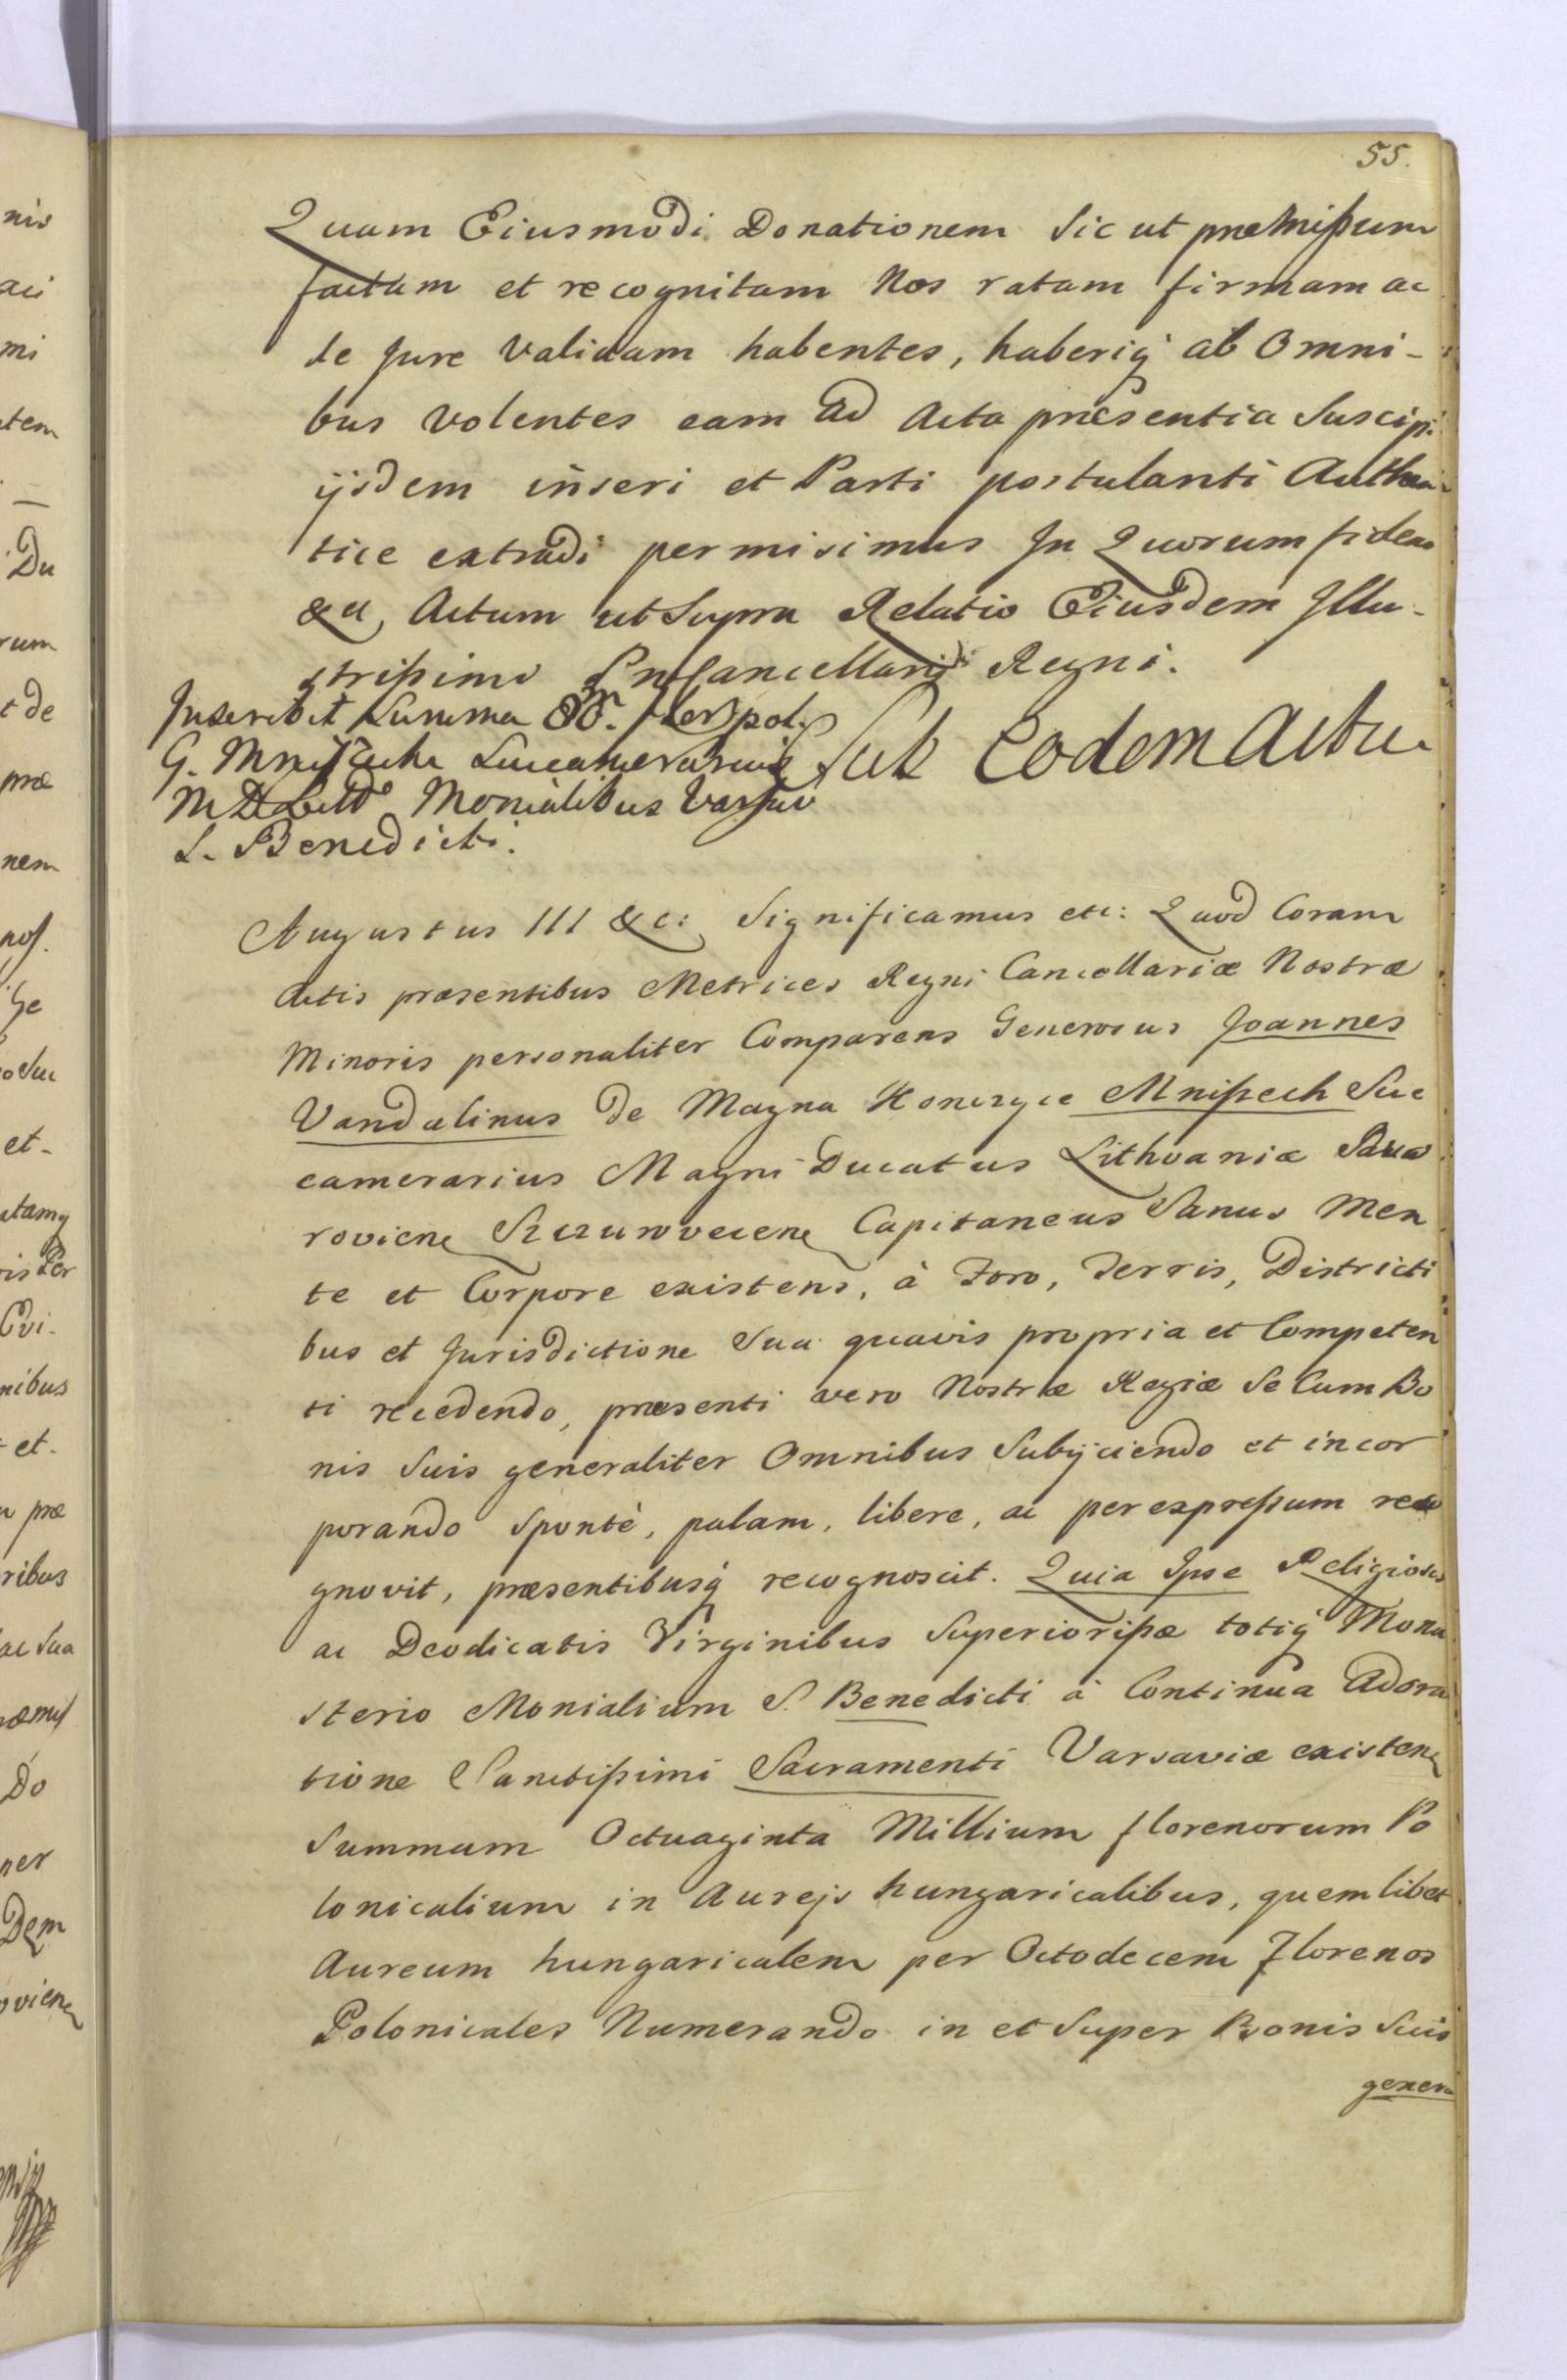 55.
Quam Eiusmodi Donationem sic ut præmißum
factam et recognitam Nos ratam firmam ac
de Jure validam habentes, haberiq ab Omni-
bus volentes eam ad Acta præsentia Suscipi
ijsdem inseri et Parti postulanti Authen-
tice extradi permisimus In Quorum fidem
&c, Actum ut Supra Relatio Eiusdem Illu-
strißimi Cancellarij Regni.
Inscribit Summa Flor pol.
G. Mniszech Succamerarius
Sub Eodem Actu
M D Litt Monialibus Varsav
S. Benedicti.
Augustus III &c: Significamus etc: Quod Coram
Actis præsentibus Metrices Regni Cancellariæ Nostræ
Minoris personaliter Comparens Generosus Joannes
Vandalinus de Magna Konczyce Mnißech Suc
camerarius Magni Ducatus Lithvaniæ
roviens Szczurovecens Capitaneus Sanus Men
te et Corpore existens, à Foro, Terris, Districti
bus et Jurisdictione Sua quavis propria et Competen
ti recedendo, præsenti vero Nostræ Regiæ Se Cum Bo
nis Suis generaliter Omnibus Subijciendo et incor
porando Spontè, palam, libere, ac per expreßum reco
gnovit, præsentibusq recognoscit. Quia Ipse Religiosis
ac Deodicatis Virginibus Superiorißæ totiq Mona
sterio Monialium S. Benedicti à Continua Adora
tione Sanctißimi Sacramenti Varsaviæ existen
Summam Octuaginta Millium florenorum Po
lonicalium in Aurejs hungaricalibus, quemlibet
Aureum hungaricalem per Octodecem Florenos
Polonicales Numerando in et Super Bonis Suis
genera